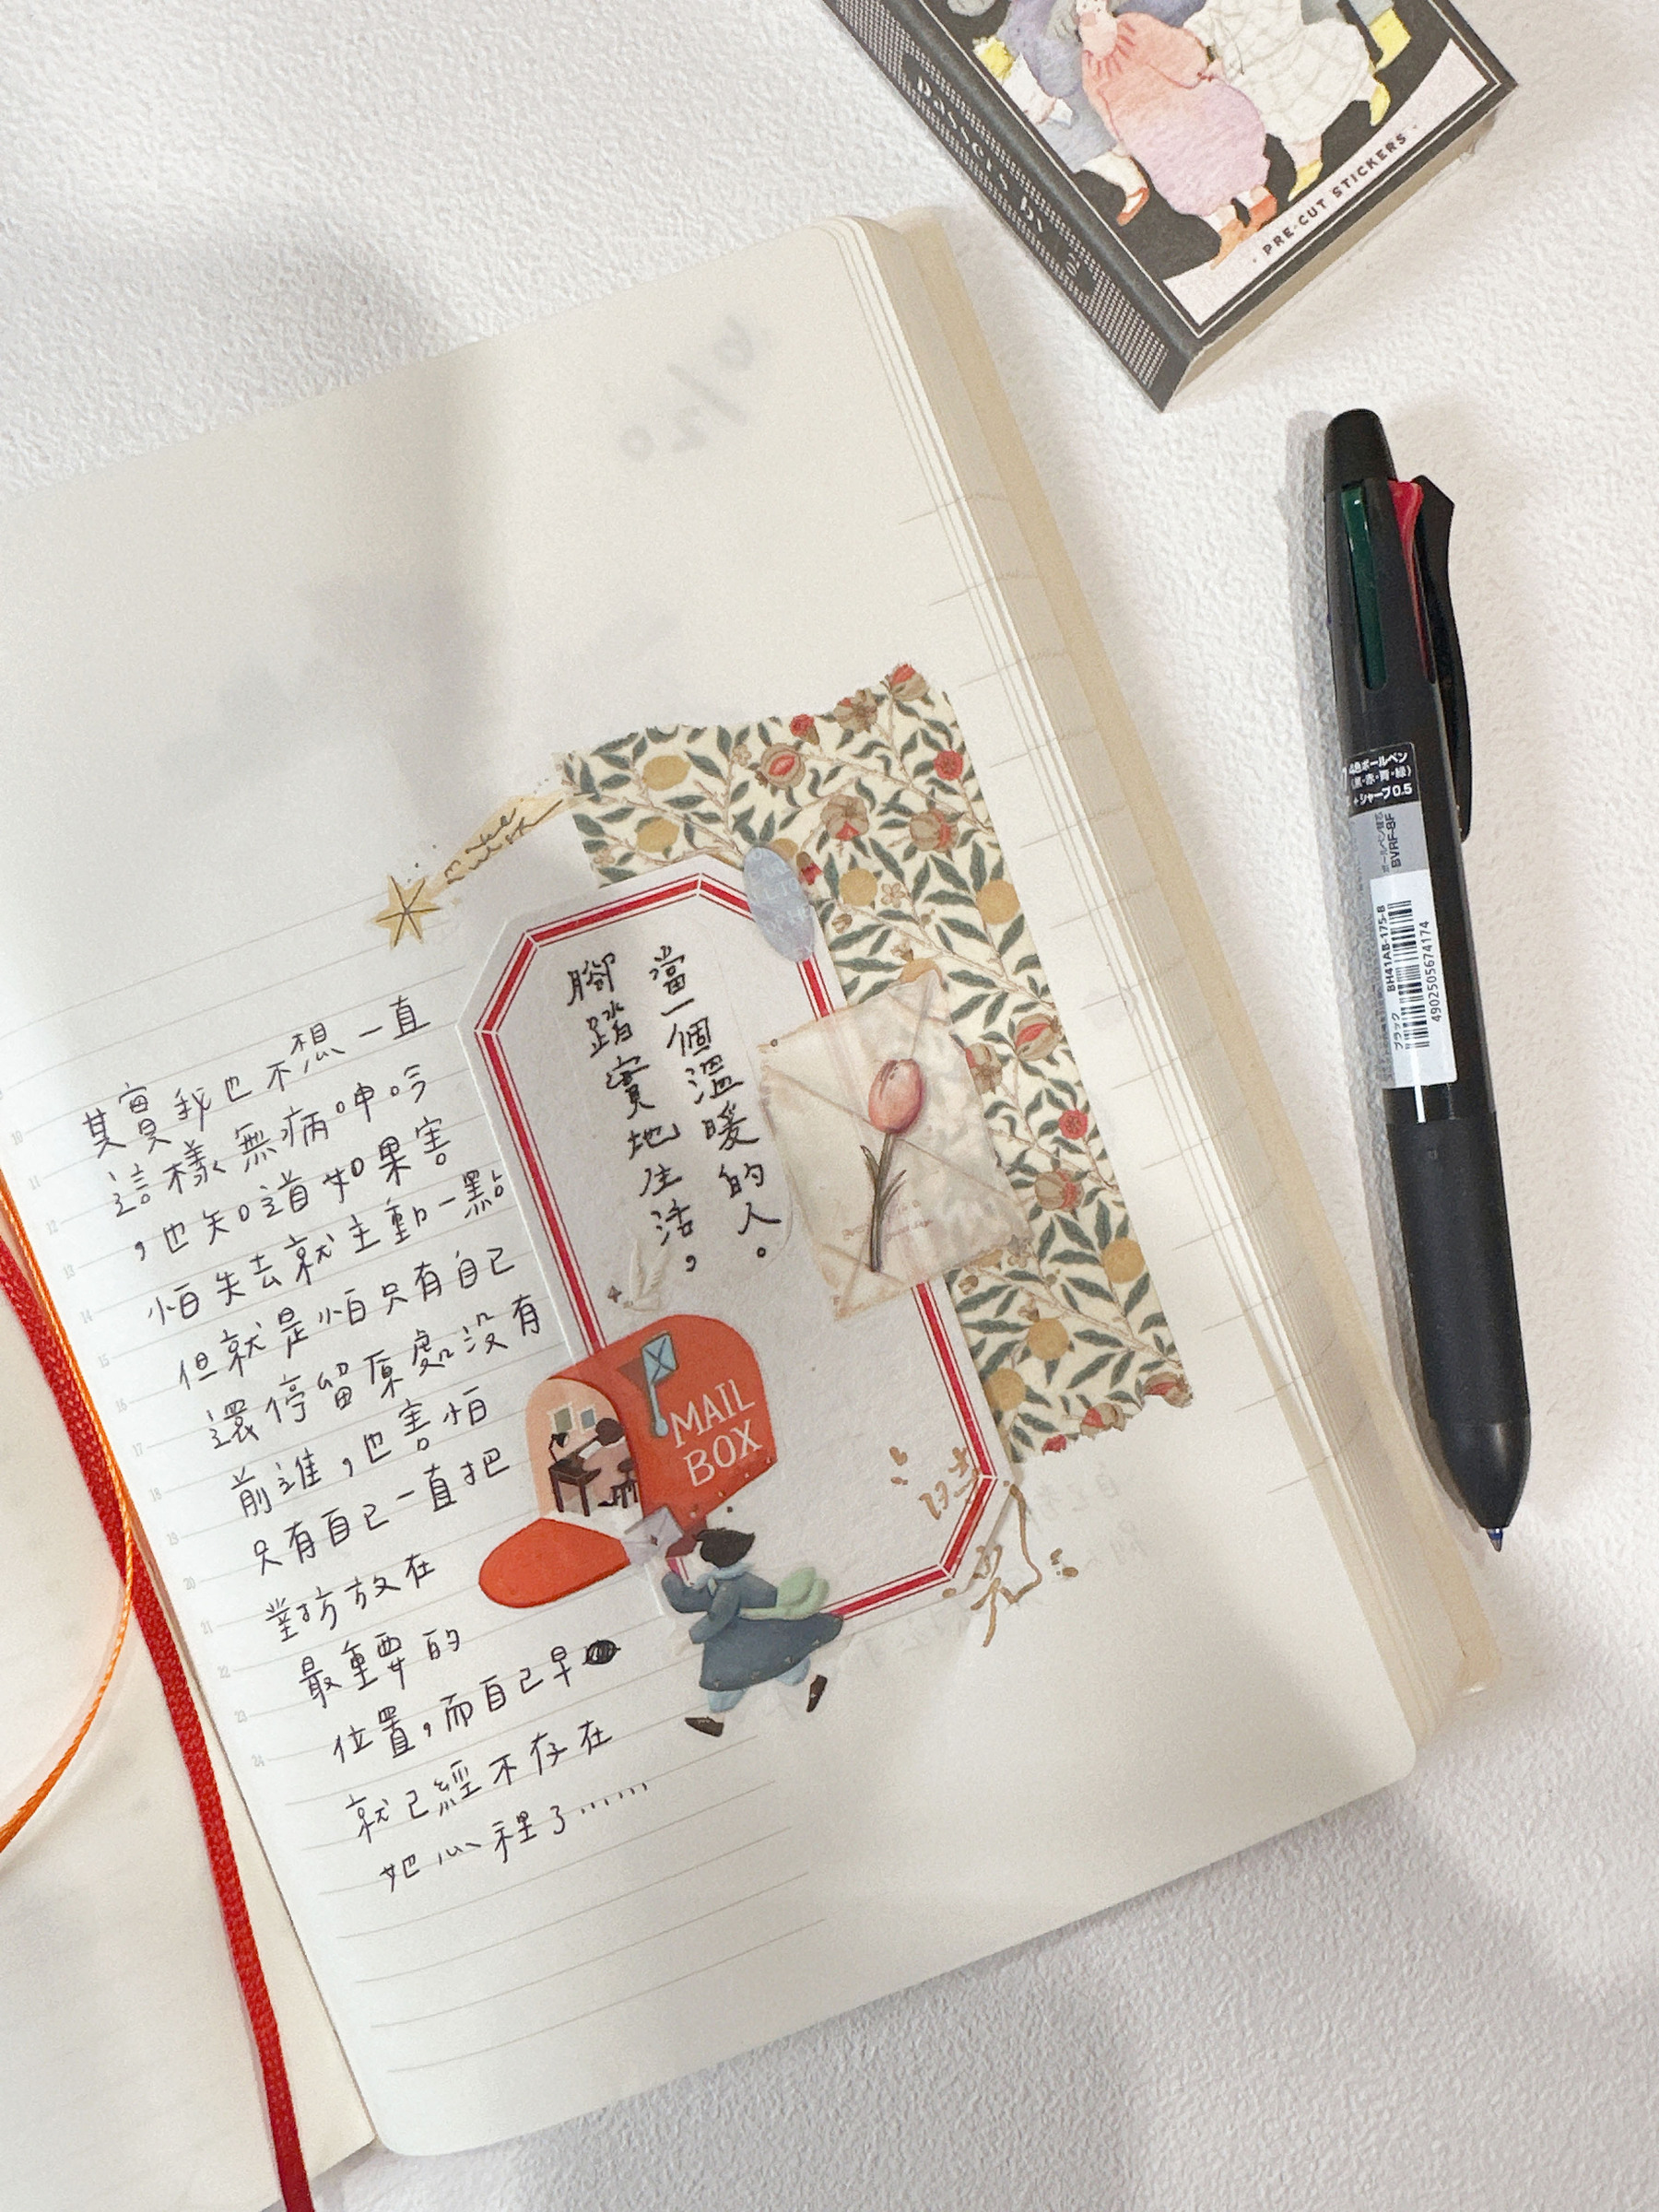 passers by
02
· PRE-CUT STICKERS ·
4/20
4色ボールペン
(黒・赤・青・緑)
+シャープ0.5
ボールペン替芯
BVRF-8F
ブラック
BH41AB-175-B
4902505674174
當一個溫暖的人。
腳踏實地生活，
MAIL
BOX
其實我也不想一直
這樣無病呻吟
，也知道如果害
怕失去就主動一點
但就是怕只有自己
還停留原處沒有
前進，也害怕
只有自己一直把
對方放在
最重要的
位置，而自己早
就已經不存在
她心裡了⋯⋯
10
11
12
13
14
15
16
17
18
19
20
21
22
23
24